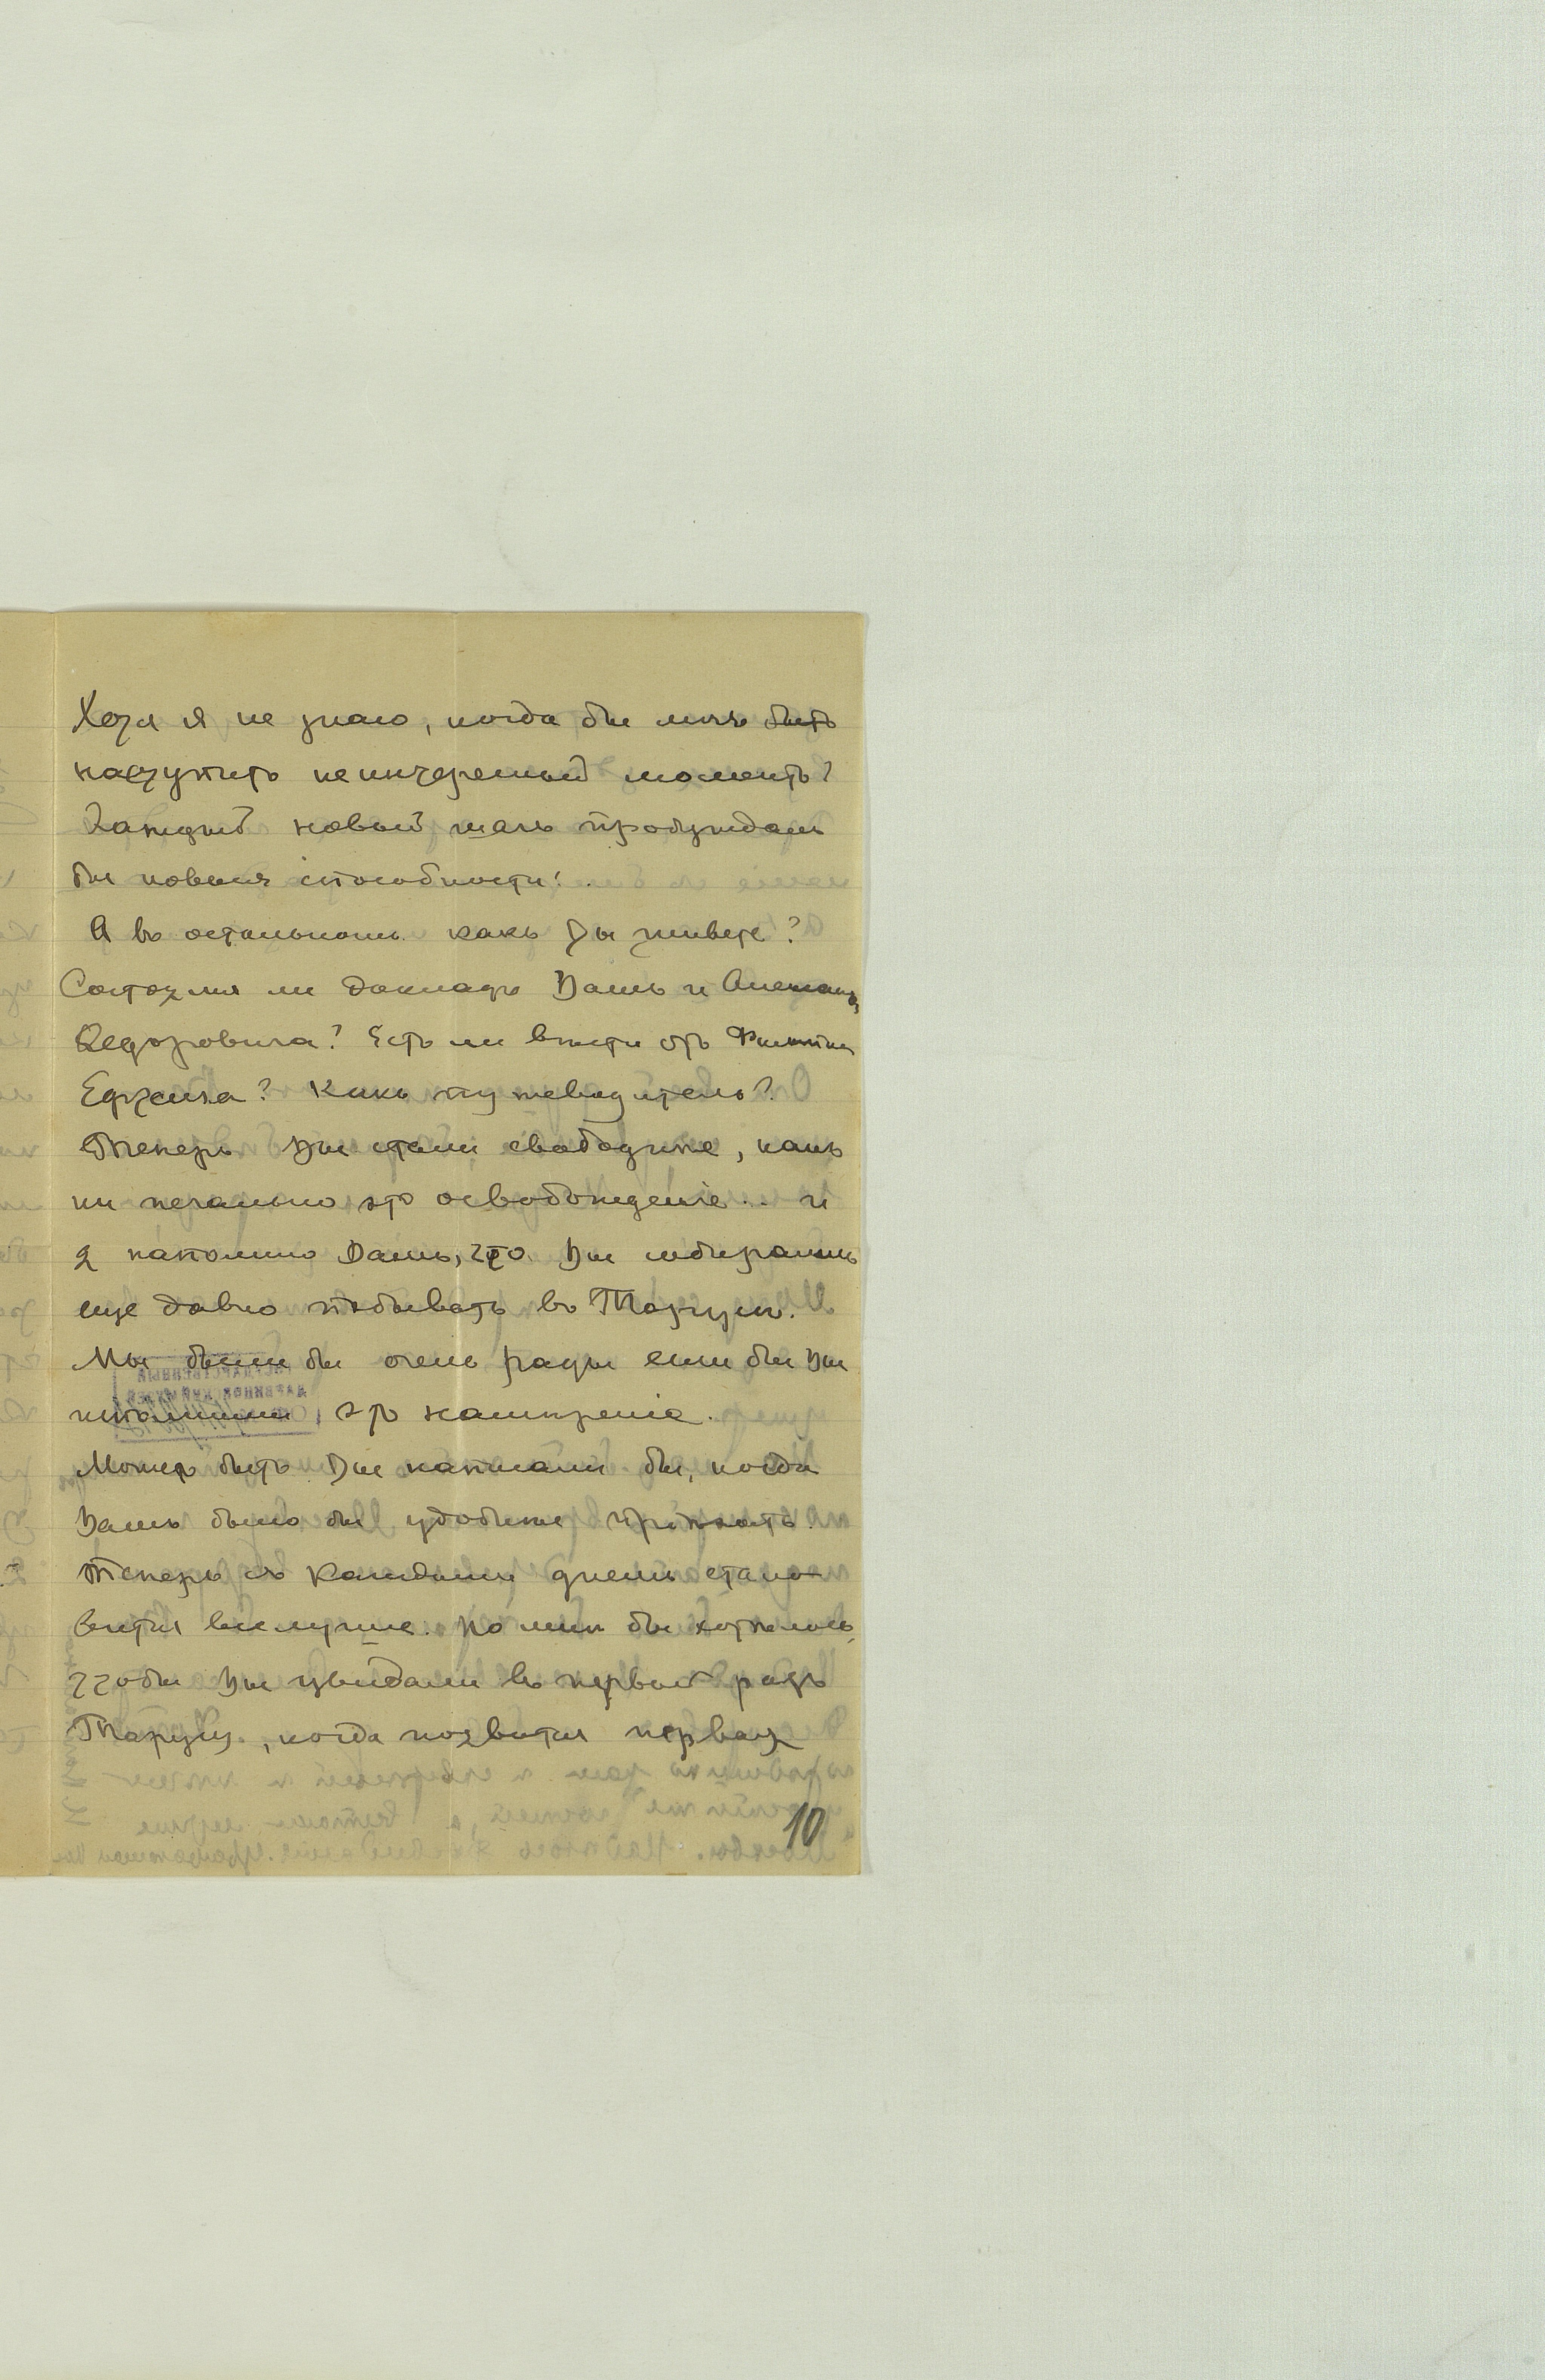 Хотя я не знаю, когда бы могъ быть
наступить неинтересный моментъ?
Каждый новый шагъ пробуждалъ
бы новыя способности!
А въ остальномъ какъ Вы живете?
Состоялся ли докладъ Вашъ и Александра
Федоровича? Есть ли вѣсти отъ Филиппа
Ефремыча? Какъ путеводитель?
Теперь Вы стали свободнѣе, какъ
ни печально это освобожденіе... и
я напомню Вамъ, что Вы собирались
еще давно побывать въ Тарусѣ.
Мы были бы очень рады если бы Вы
исполнили это намѣреніе.
Можетъ быть Вы написали бы, когда
Вамъ было бы удобнѣе пріѣхать.
Теперь съ каждымъ днемъ стано-
вится все лучше. Но мнѣ бы хотѣлось,
чтобы Вы увидали въ первый разъ
Тарусу, когда появится первая
10